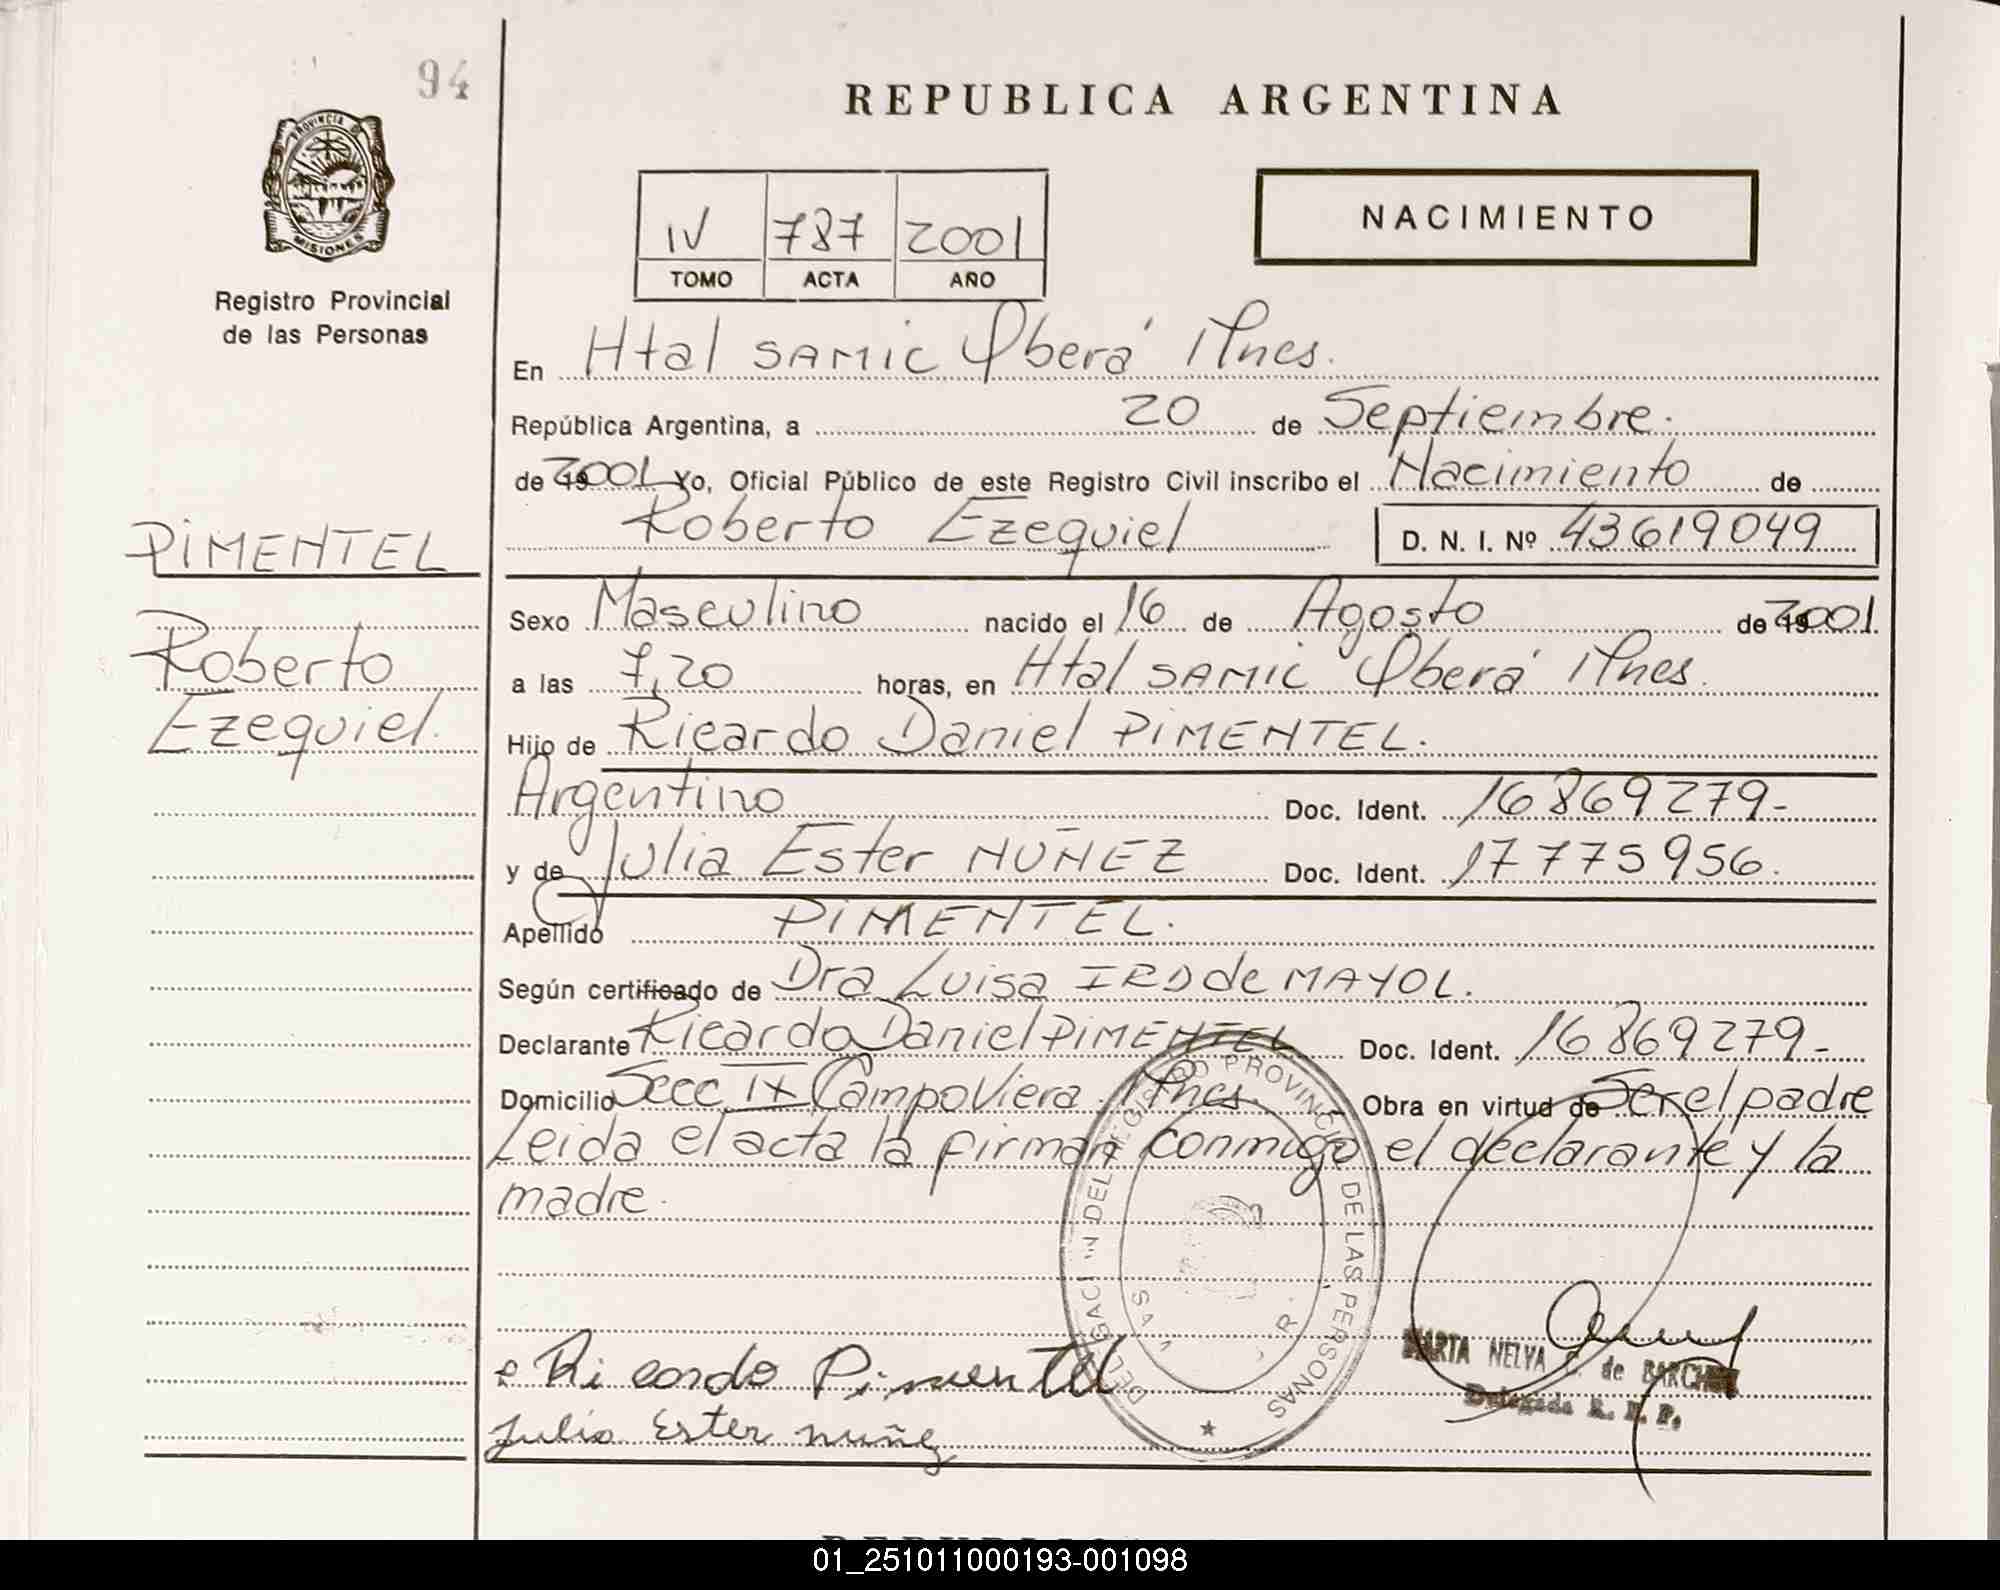 94
REPUBLICA ARGENTINA
PROVINCIA DE
MISIONES
Registro Provincial
de las Personas
IV 787 2001
TOMO ACTA AÑO
NACIMIENTO
En Htal SAMIC Oberá Mnes.
República Argentina, a 20 de Septiembre.
de 19 2001 Yo, Oficial Público de este Registro Civil inscribo el Nacimiento de
Roberto Ezequiel D. N. I. Nº 43619049
PIMENTEL
Roberto
Ezequiel.
Sexo Masculino nacido el 16 de Agosto de 19 2001.
a las 7,20 horas, en Htal SAMIC Oberá Mnes.
Hijo de Ricardo Daniel PIMENTEL.
Argentino Doc. Ident. 16869279-
y de Julia Ester NUÑEZ Doc. Ident. 17775956.
Apellido PIMENTEL.
Según certificado de Dra Luisa de MAYOL.
Declarante Ricardo Daniel PIMENTEL Doc. Ident. 16869279-
Domicilio Secc IX Campo Viera. Mnes. Obra en virtud de Ser el padre
Leida el acta la firman conmigo el declarante y la
madre.
DEL REGISTRO PROVINCIAL DE LAS PERSONAS
Ricardo Pimentel
Julia Ester nuñez
MARTA NELVA C. de
Delegada R. P. P.
REPUBLICA
01_251011000193-001098